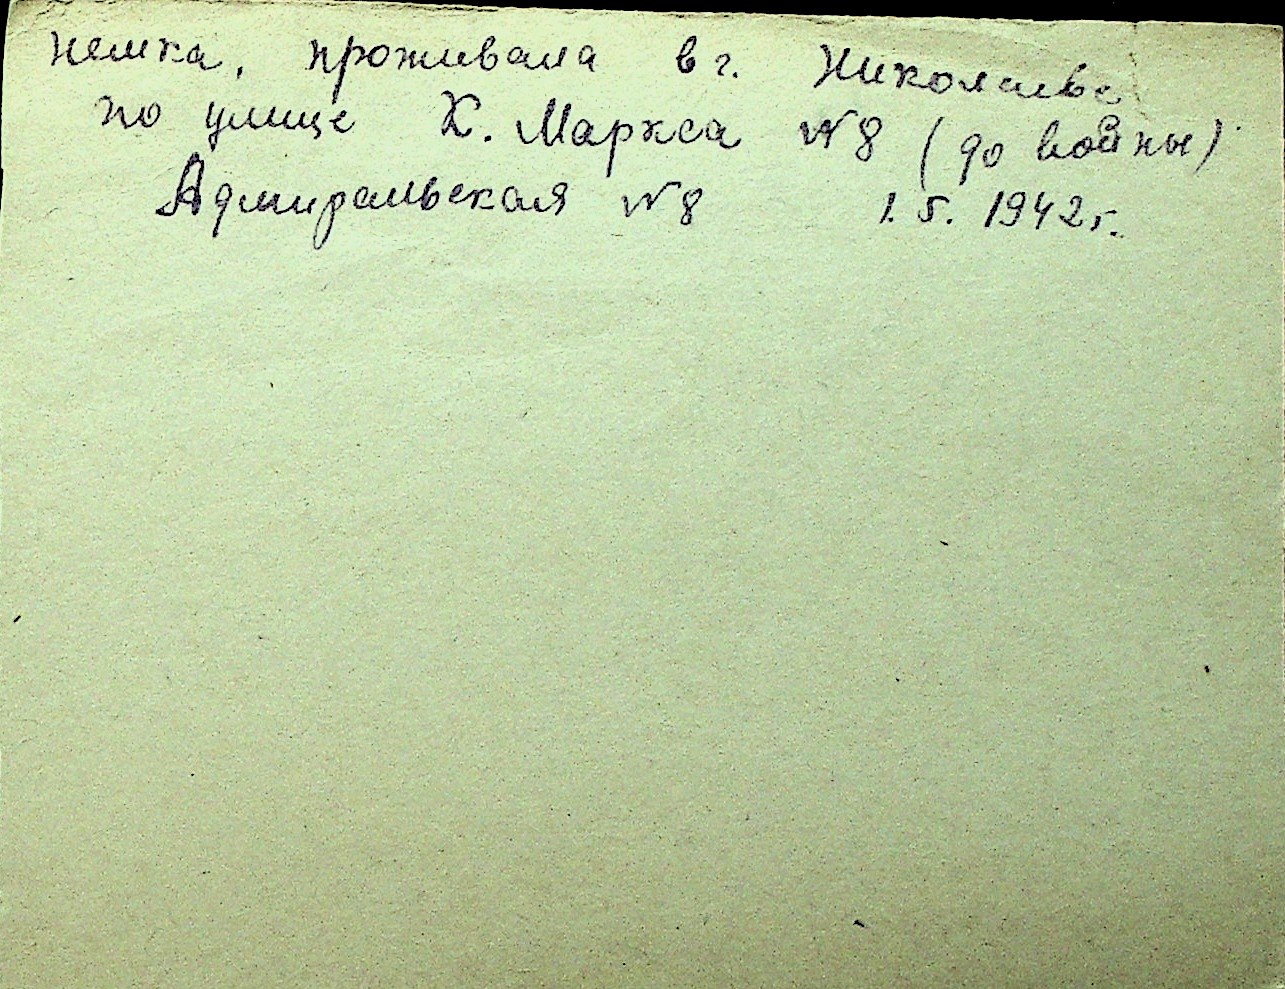 немка, проживала в г. Николаеве
по улице К. Маркса №8 (до войны)
Адмиральская №8 1.5.1942г.